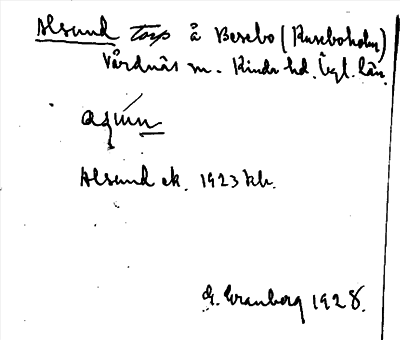 Alsund Torp å Bosebo (Ruseboholm)
Vårdnäs sn. Kinda hd. Ögl. län.
Alsund ek. 1923 kb.
G. Granberg 1928.